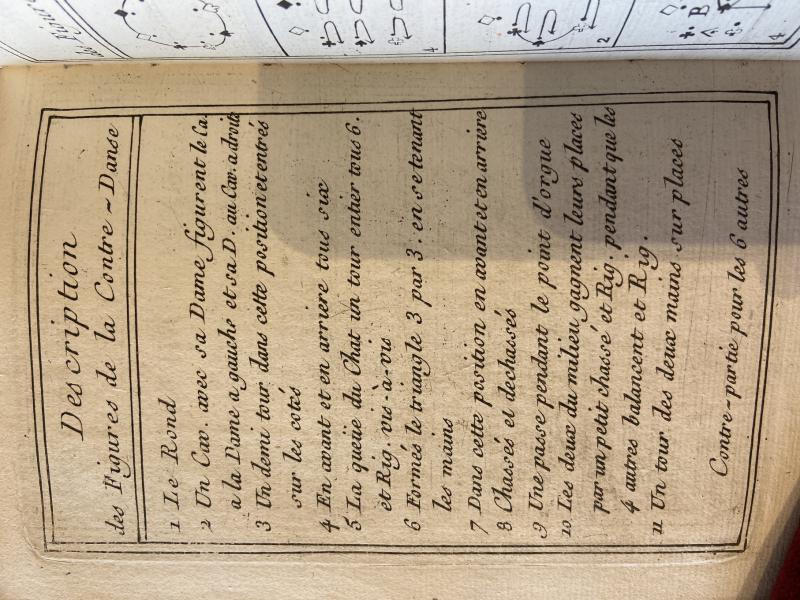 Description
des Figures de la Contre ~ Danse
1 Le Rond
2 Un Cav. avec sa Dame figurent le Ca.
a la Dame a gauche et sa D. au Cav. a droite
3 Un demi tour dans cette position et entrés
sur les cotés
4 En avant et en arriere tous six
5 La queüe du Chat un tour entier tous 6.
et Rig. vis-à-vis
6 Formés le triangle 3 par 3. en se tenant
les mains
7 Dans cette position en avant et en arriere
8 Chassés et dechassés
9 Une passe pendant le point d'orgue
10 Les deux du milieu gagnent leurs places
par un petit chassé et Rig. pendant que les
4 autres balancent et Rig.
11 Un tour des deux mains sur places
Contre-partie pour les 6 autres
4
2
B
4